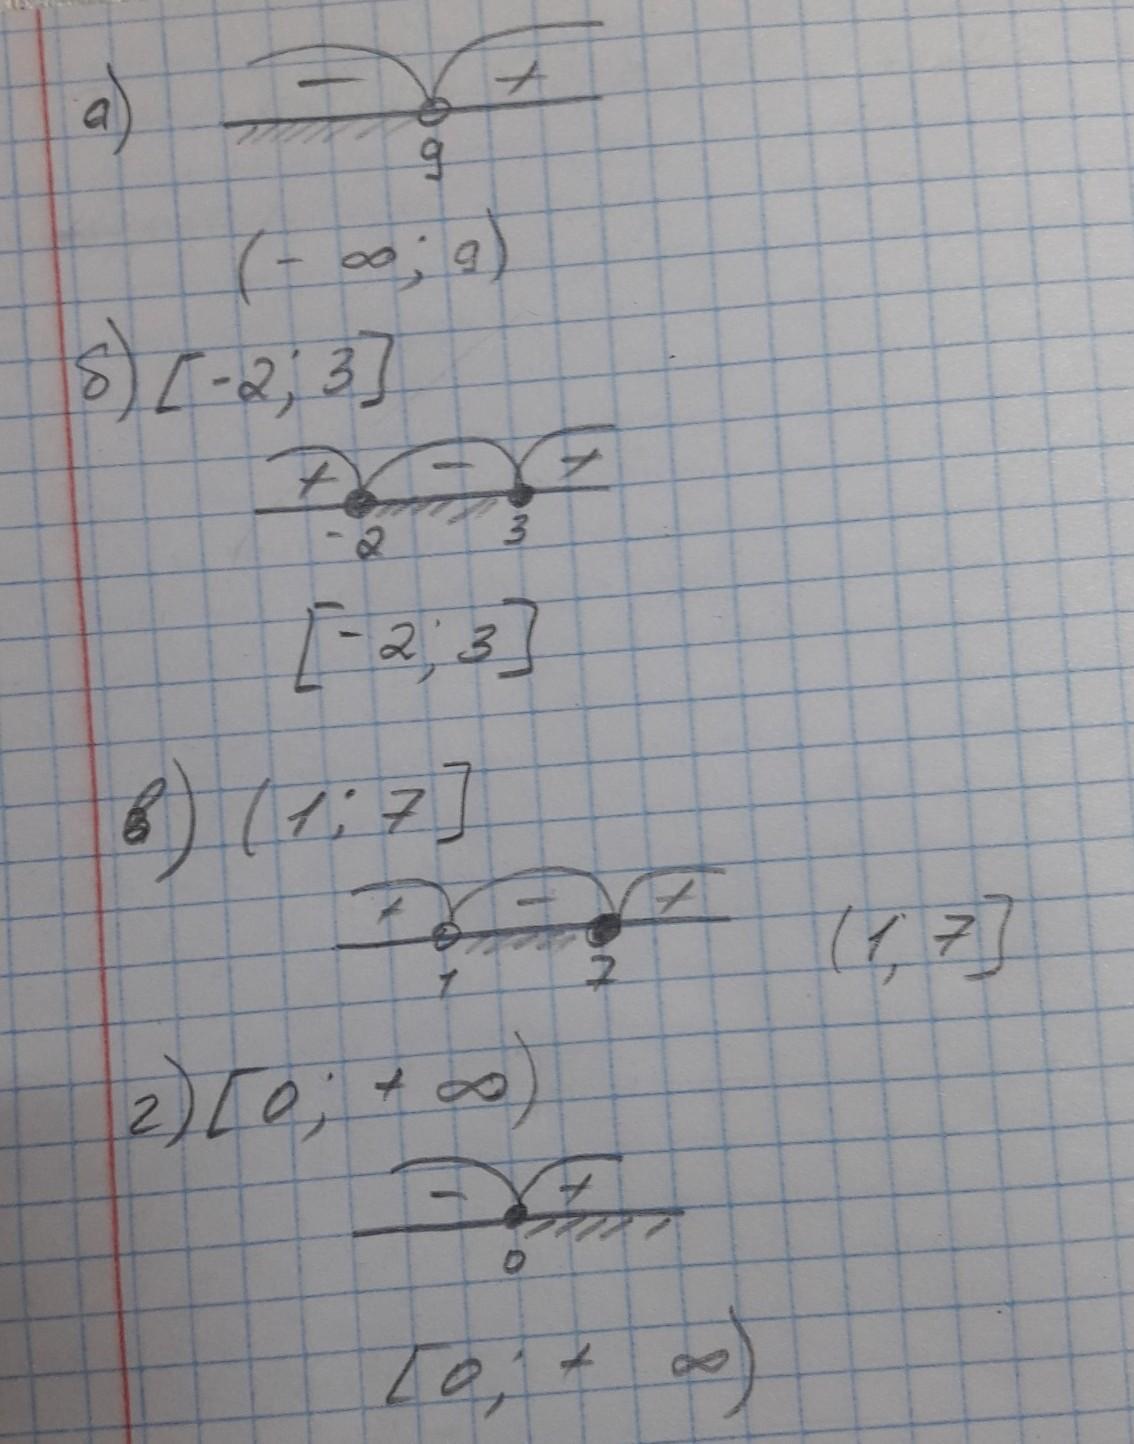 а)
- +
9
(- ∞; 9)
б) [-2; 3]
+ - +
-2 3
[-2; 3]
в) (1; 7]
+ - +
1 7
(1; 7]
г) [0; + ∞)
- +
0
[0; + ∞)